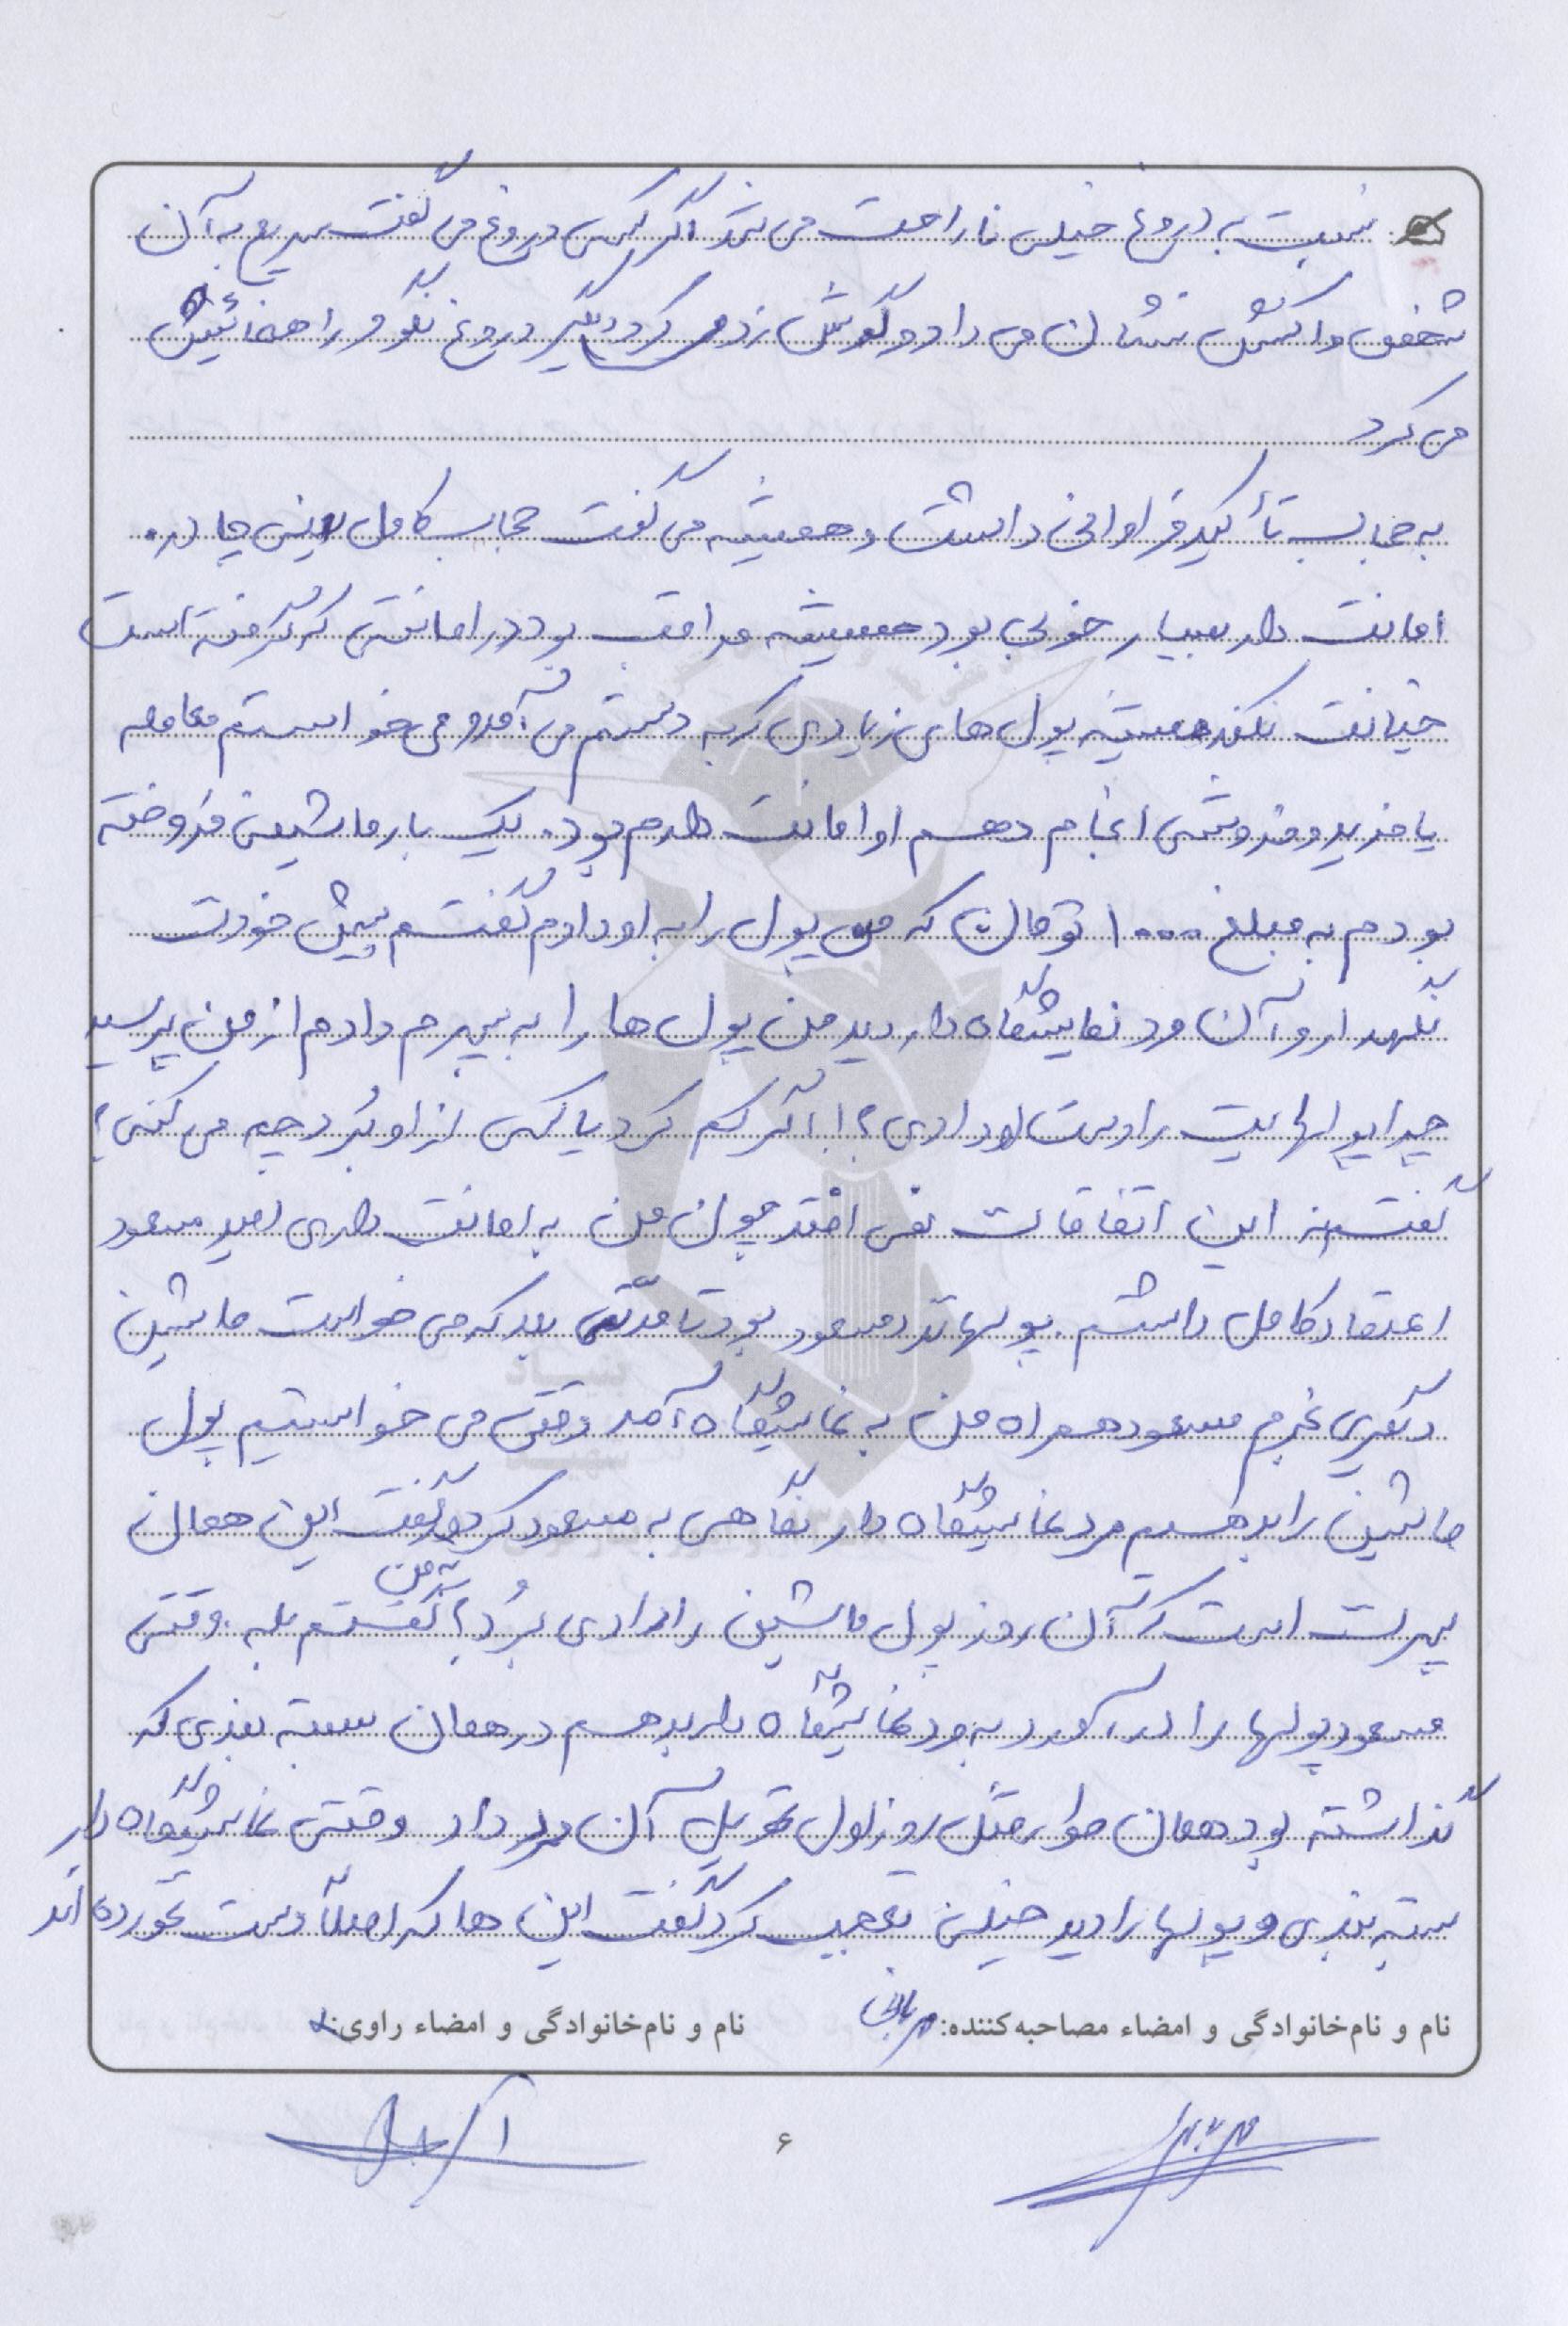 نسبت به دروغ خیلی ناراحت می شد اگر کسی دروغ می گفت سریع به آن
شخص واکنش نشان می داد و گوشزد می کرد دیگر دروغ نگو و راهنمائیش
می کرد
به حجاب تأکید فراوانی داشت و همیشه می گفت حجاب کامل یعنی چادر.
امانت دار بسیار خوبی بود همیشه مراقب بود در امانتی که گرفته است
خیانت نکند همیشه پول های زیادی که به دستم می آمد و می خواستم معامله
یا خرید و فروشی انجام دهم او امانت دارم بود. یک بار ماشین فروخته
بودم به مبلغ ۱۰۰۰ تومان که من پول را به او دادم گفتم پیش خودت
نگهدار و آن مرد نمایشگاه دار دید من پول ها را به پسرم دادم از من پرسید
چرا پولهایت را دست او دادی؟! اگر گم کرد یا کسی از او بُرد چیه می کنی؟
گفتم نه این اتفاقات نمی افتد چون من به امانت داری امیر مسعود
اعتقاد کامل داشتم. پولها نزد مسعود بود تا مدتی بعد که می خواست ماشین
دیگری بخرم مسعود همراه من به نمایشگاه آمد وقتی می خواستیم پول
ماشین را بدهیم مرد نمایشگاه دار نگاهی به مسعود کرد و گفت این همان
پسرت است که آن روز پول ماشین را دادی بُرد؟ من گفتم بله. وقتی
مسعود پولها را درآورد به مرد نمایشگاه دار بدهیم در همان بسته بندی که
گذاشته بود همان طور مثل روز اول تحویل آن مرد داد وقتی نمایشگاه دار
بسته بندی و پولها را دید خیلی تعجب کرد گفت این ها که اصلاً دست نخورده اند
نام و نام‌خانوادگی و امضاء مصاحبه‌کننده:
نام و نام‌خانوادگی و امضاء راوی:
۶